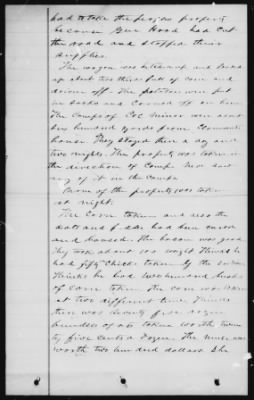 had to take the forage property
because Genl Hood had cut
the road and stopped their
supplies.
The wagon was and
up about two thirds full of corn and
driven off. The potatoes were put
in sacks and carried off on
The camps of Col Minor were about
hundred yards from Claimants
house. They stayed there a day and
two nights. The property was taken in
the direction of camp. Never saw
any of it in the camps
None of the property was taken
at night.
The corn taken and also the
oats and fodder had been
and housed. The bacon was good
They took about 100 weight thinks he
had fifty chicks taken by the
Thinks he had two hundred bushels
of corn taken. The corn was taken
at two different times. Thinks
there was twenty five dozen
bundles of oats taken worth twen
ty five cents a dozen. The mule was
worth two hundred dollars She